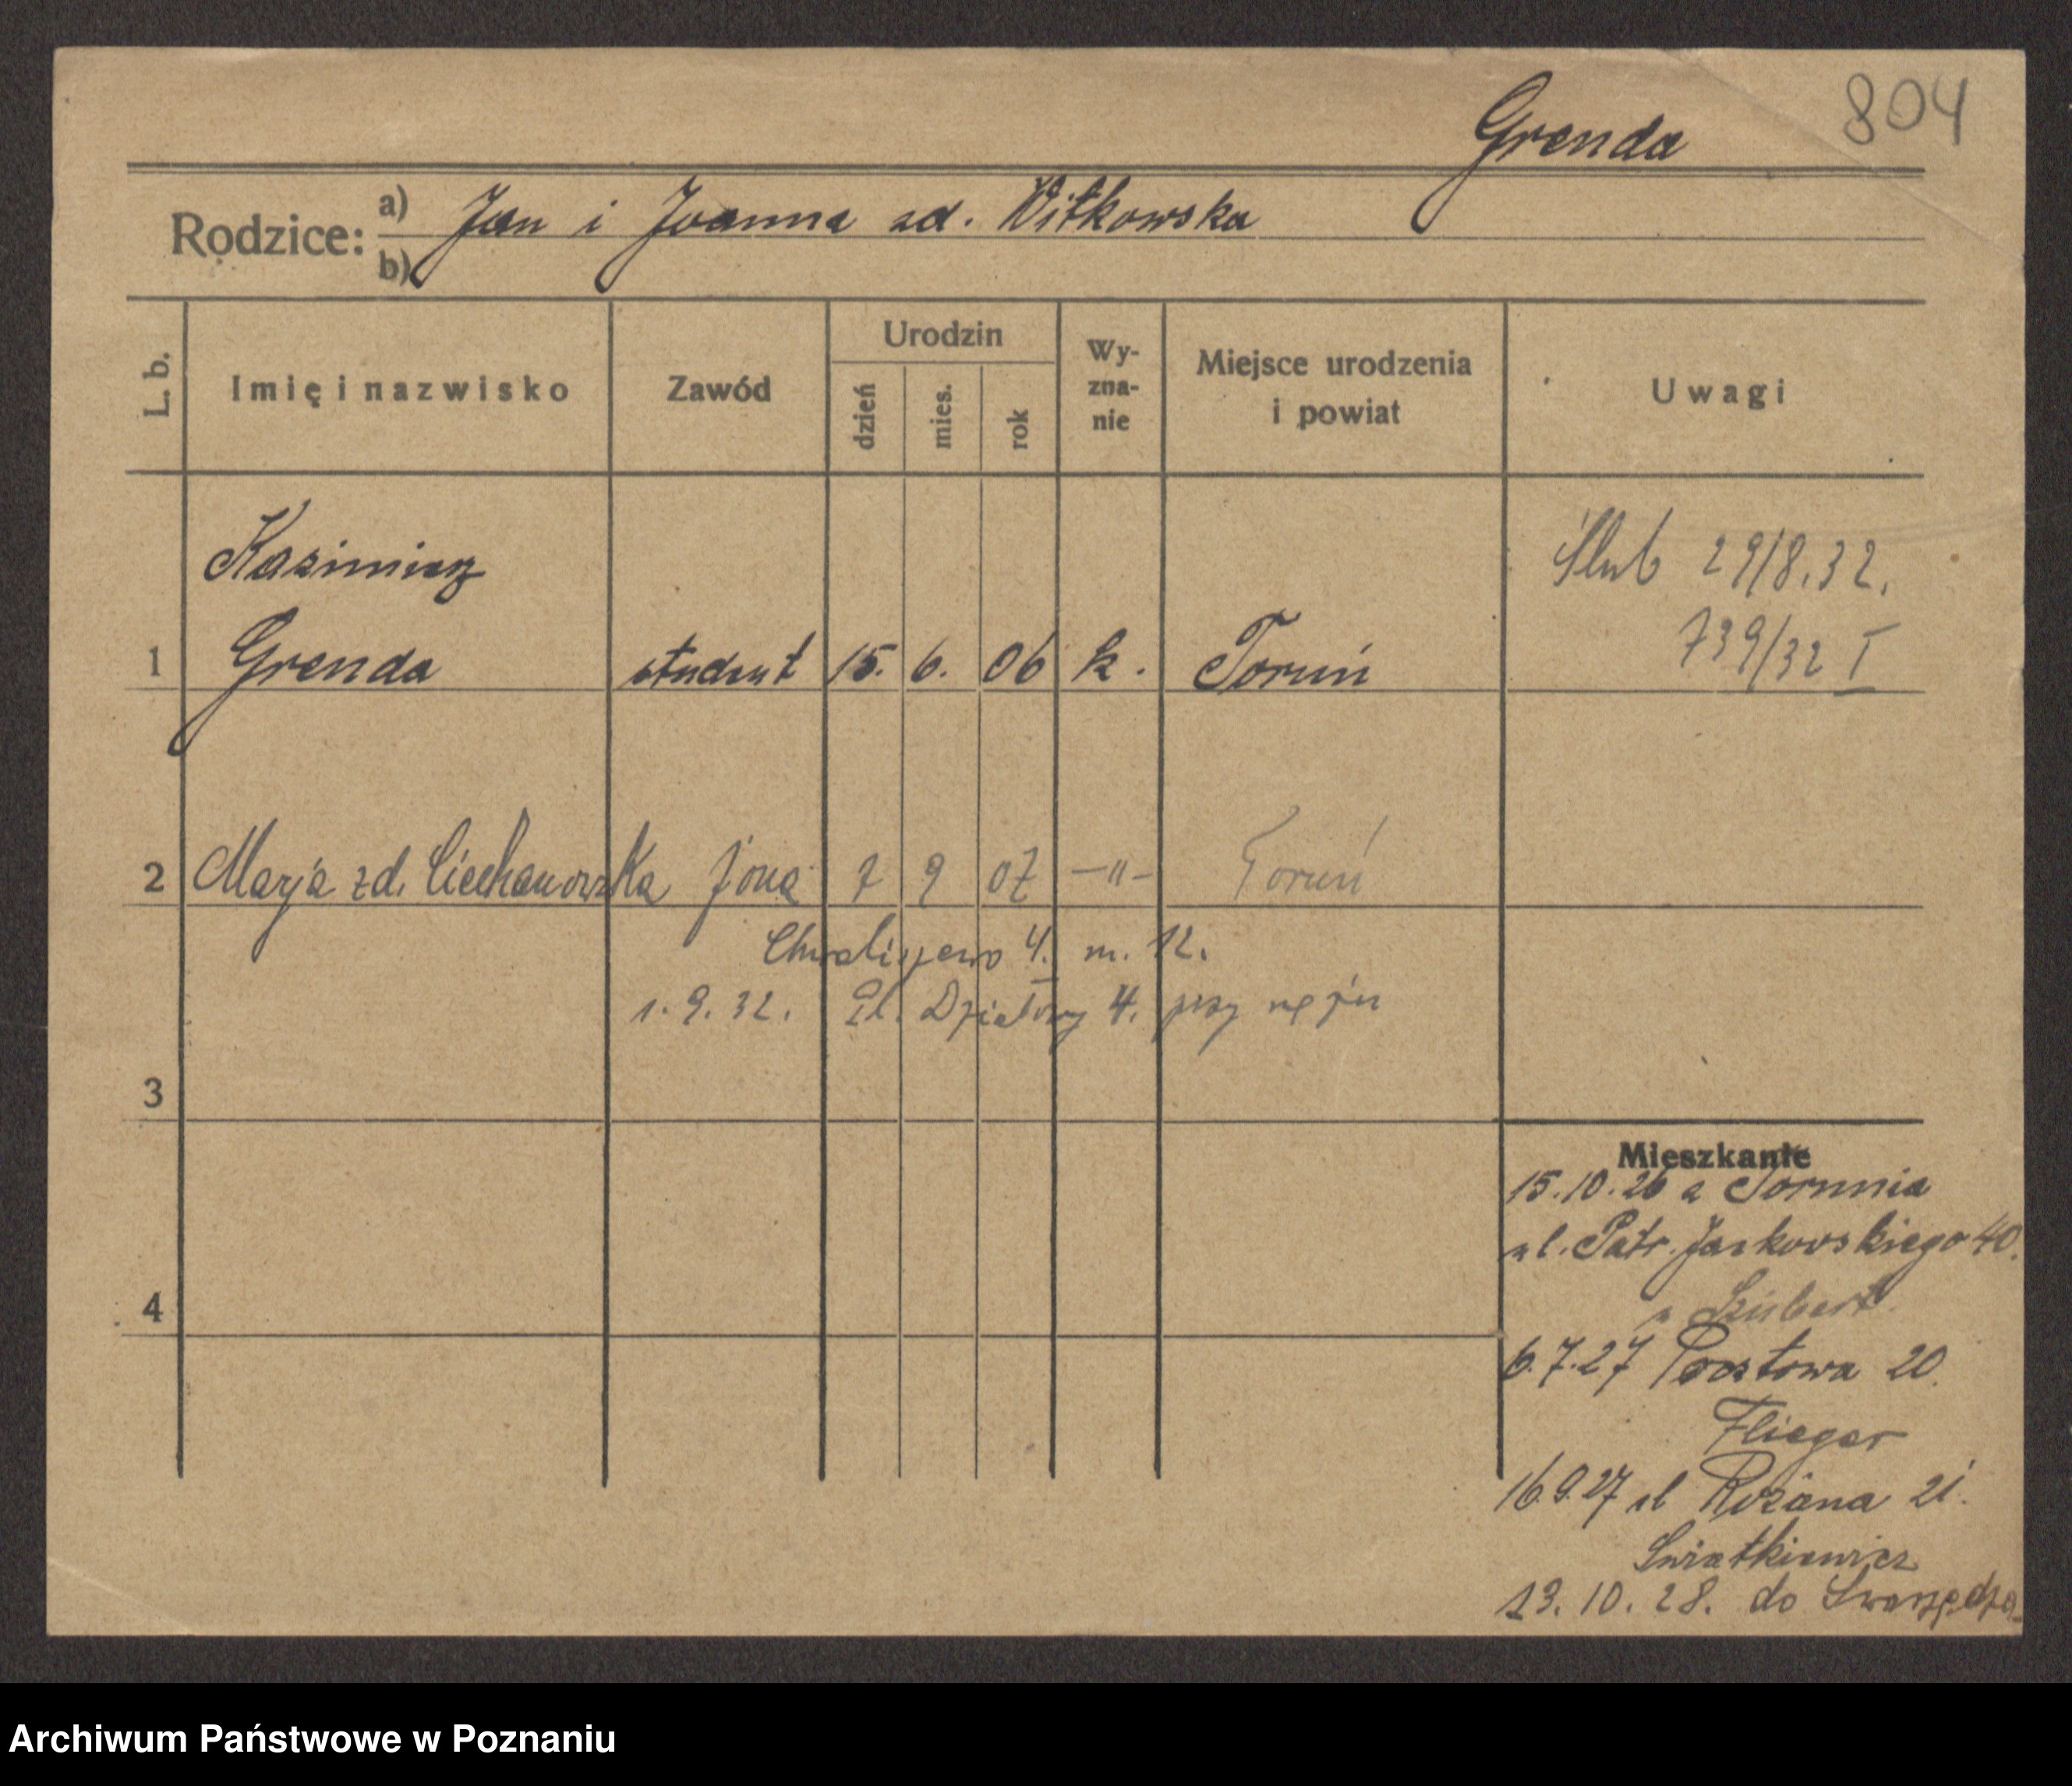 804
Grenda
Rodzice: a) Jan i Joanna zd. Witkowska
b)
L. b. Imię i nazwisko Zawód Urodzin dzień mies. rok Wy-zna-nie Miejsce urodzenia i powiat Uwagi
Kazimierz
Ślub 29/8.32.
1 Grenda student 15. 6. 06 k. Toruń
739/32 I
2 Marja zd. Ciechanowska żona 7 9 07 —"— Toruń
Chwaliszewo 4. m. 12.
1.9.32. Pl. Działowy 4. przy mężu
3
4
Mieszkanie
15.10.26 z Torunia
ul. Patr. Jackowskiego 40.
u Szubert
6.7.27 Pocztowa 20.
Flieger
16.9.27 ul Różana 21.
Swiatkiewicz
13.10.28. do Swarzędza
Archiwum Państwowe w Poznaniu